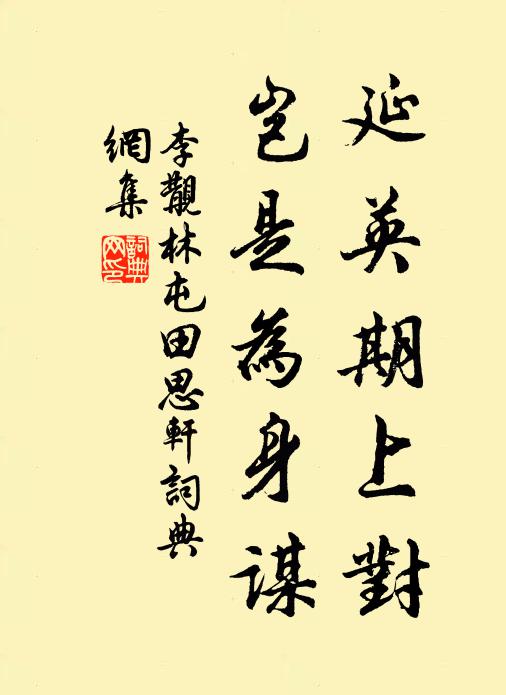 延英期上對
豈是為身謀
李觀林屯田思軒詞典
網集
詞典網印